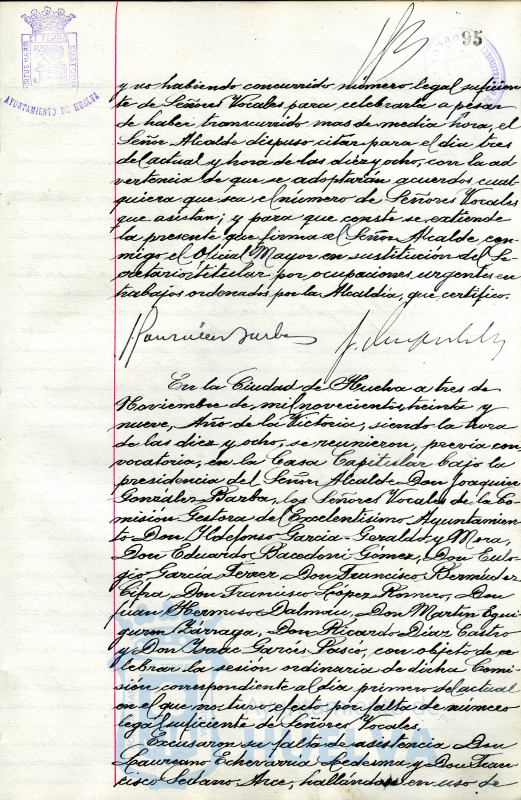 95
PORTUS MARIS ET TERRAE CUSTODIA
AYUNTAMIENTO DE HUELVA
y no habiendo concurrido número legal suficien
te de Señores Vocales para celebrarla a pesar
de haber transcurrido mas de media hora, el
Señor Alcalde dispuso citar para el día tres
del actual y hora de las diez y ocho, con la ad
vertencia de que se adoptarán acuerdos cual
quiera que sea el número de Señores Vocales
que asistan; y para que conste se extiende
la presente que firma el Señor Alcalde con
migo el Oficial Mayor en sustitución del Se
cretario titular por ocupaciones urgentes en
trabajos ordenados por la Alcaldía, que certifico.
En la Ciudad de Huelva a tres de
Noviembre de mil novecientos treinta y
nueve, Año de la Victoria, siendo la hora
de las diez y ocho, se reunieron, previa con
vocatoria, en la Casa Capitular bajo la
presidencia del Señor Alcalde Don Joaquin
González Barba, los Señores Vocales de la Co
misión Gestora del Excelentísimo Ayuntamien
to Don Ildefonso García-Geraldo y Mora,
Don Eduardo Bacedoni Gómez, Don Eulo
gio García Ferrer, Don Francisco Bermúdez
Cifra, Don Francisco López Romero, Don
Juan Hermoso Dalmau, Don Martín Egui
guren Zárraga, Don Ricardo Díaz Castro
y Don Isaac García Pascó, con objeto de ce
lebrar la sesión ordinaria de dicha Comi
sión correspondiente al día primero del actual
en el que no tuvo efecto por falta de número
legal suficiente de Señores Vocales.
Excusaron su falta de asistencia Don
Laureano Echevarria Ledesma y Don Fran
cisco Sedano Arce, hallándose en uso de
HUELVA